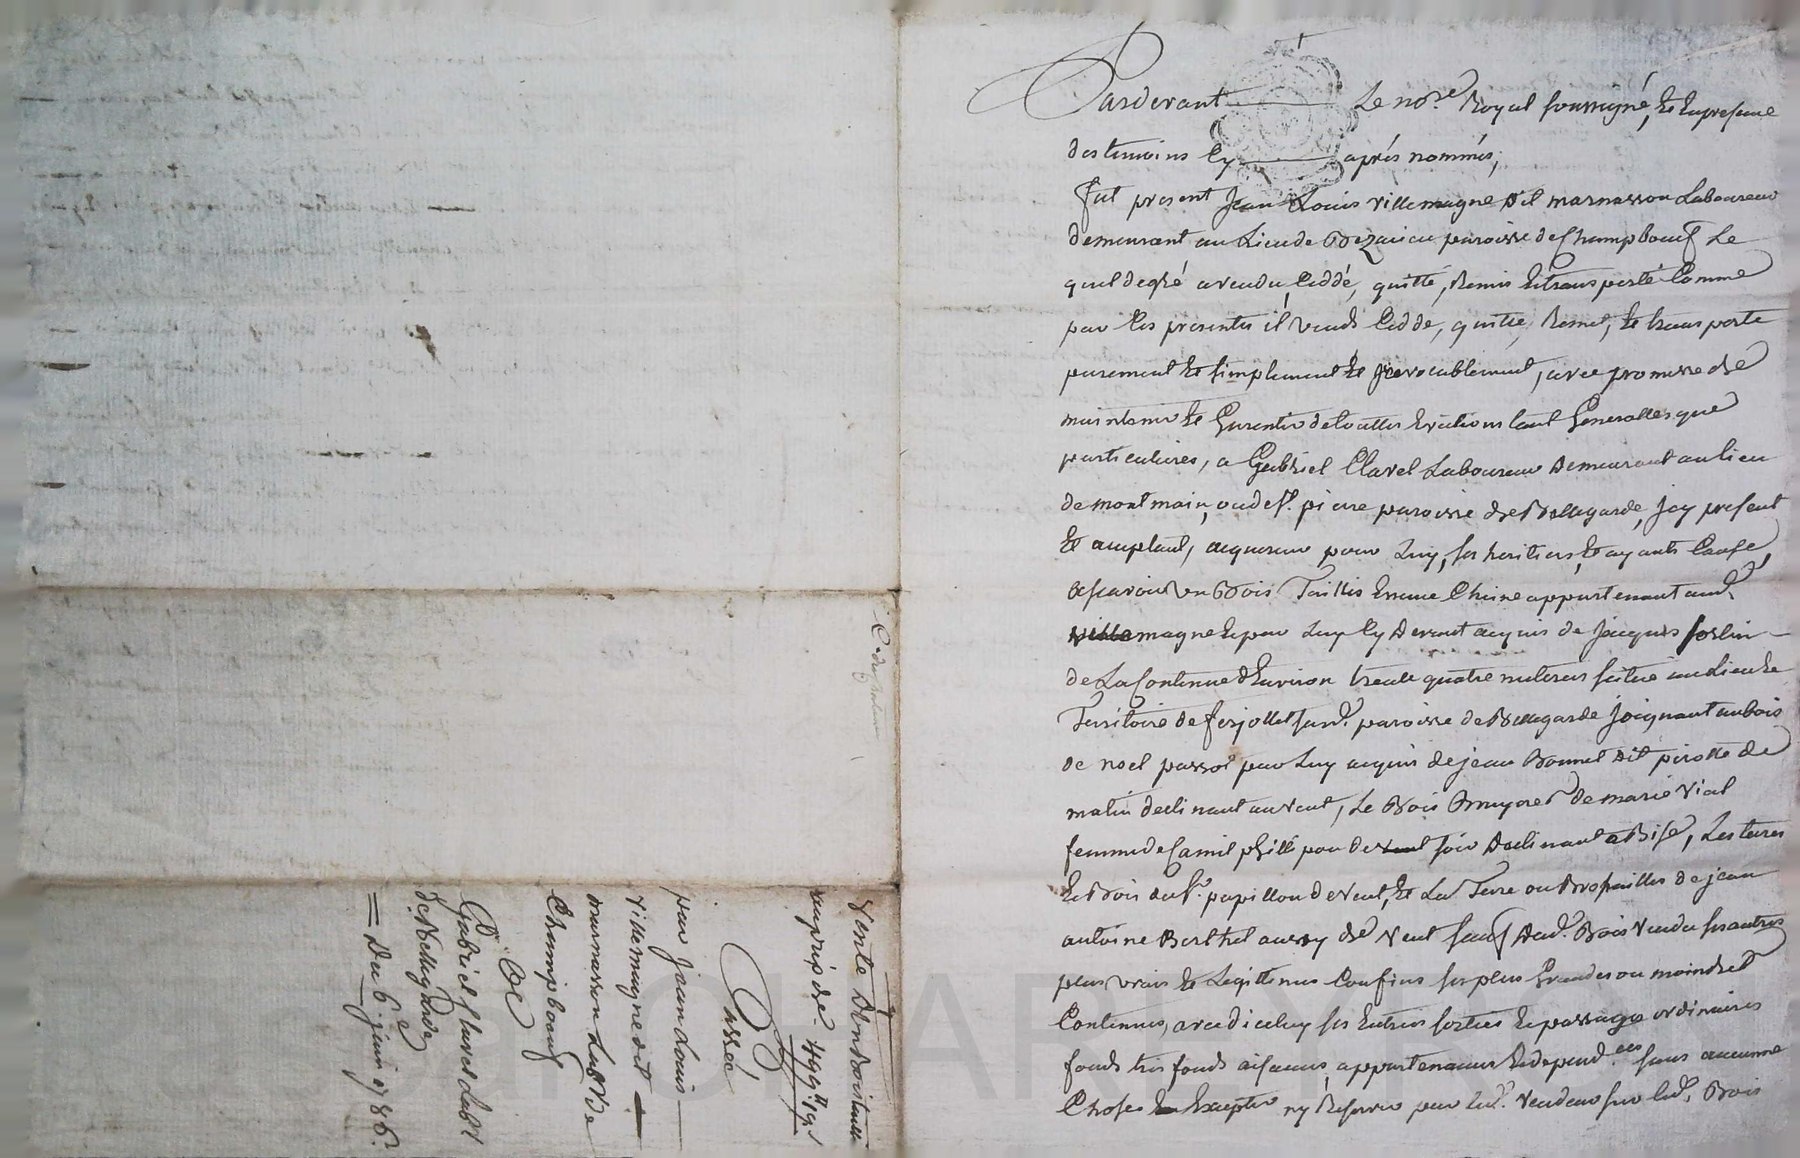 Pardevant Le no.re Royal soussigné, Et En presence
des temoins Cy après nommés,
fut present Jean Louis villemagne dit marnasson Laboureur
demeurant au Lieu de paroisse de Champboeuf Le
quel de gré a vendu, Ceddé, quitté, Remis Et transporté Comme
par Ces presentes il vend Cedde, quitte, Remet, Et transporte
purement Et simplement Et jrrevocablement, avec promesse de
maintenir Et Garentir de touttes Evictions tant Generalles que
particulieres, a Gabriel Clavel Laboureur demeurant au lieu
de montmain, ou de St. pierre paroisse de Bellegarde, Jcy present
Et acceptant, acquereur pour Luy, ses heritiers, Et ayants Cause,
Ascavoir un Bois Taillis Essence Chaine appartenant aud.
villemagne Et par Luy Cy devant acquis de Jacques
de La Contenue d'Environ trente quatre meterées scitué au Lieu Et
Territoire de paroisse de Bellegarde Joignant au bois
de noel passot par Luy acquis de jean Bonnet dit pirotte de
matin declinant au vent, Le Bois de marie vial
femme de par de soir declinant a Bise, Les terres
Et Bois du Sr. papillon de vent, Et La Terre ou Brossailles de jean
antoine Berthet aussy de vent sauf dud. Bois vendu ses autres
plus vrais Et Legitimes Confins ses plus Grandes ou moindres
Contenues, avec d'iceluy ses Entrées sorties Et passages ordinaires
fonds tres fonds aisances, appartenances Et depend.ces sans aucunne
Chose En Excepter ny Reserver par led. vendeur sur led. Bois
Vente d'un bois taillis
au prix de 499ll 19s
Passée
par Jean Louis
villemagne dit
marnasson Lab.r de
Champboeuf
A
Gabriel Clavel Lab.r
de Bellegarde
= Du 6 juin 1786.
CHAPITRE